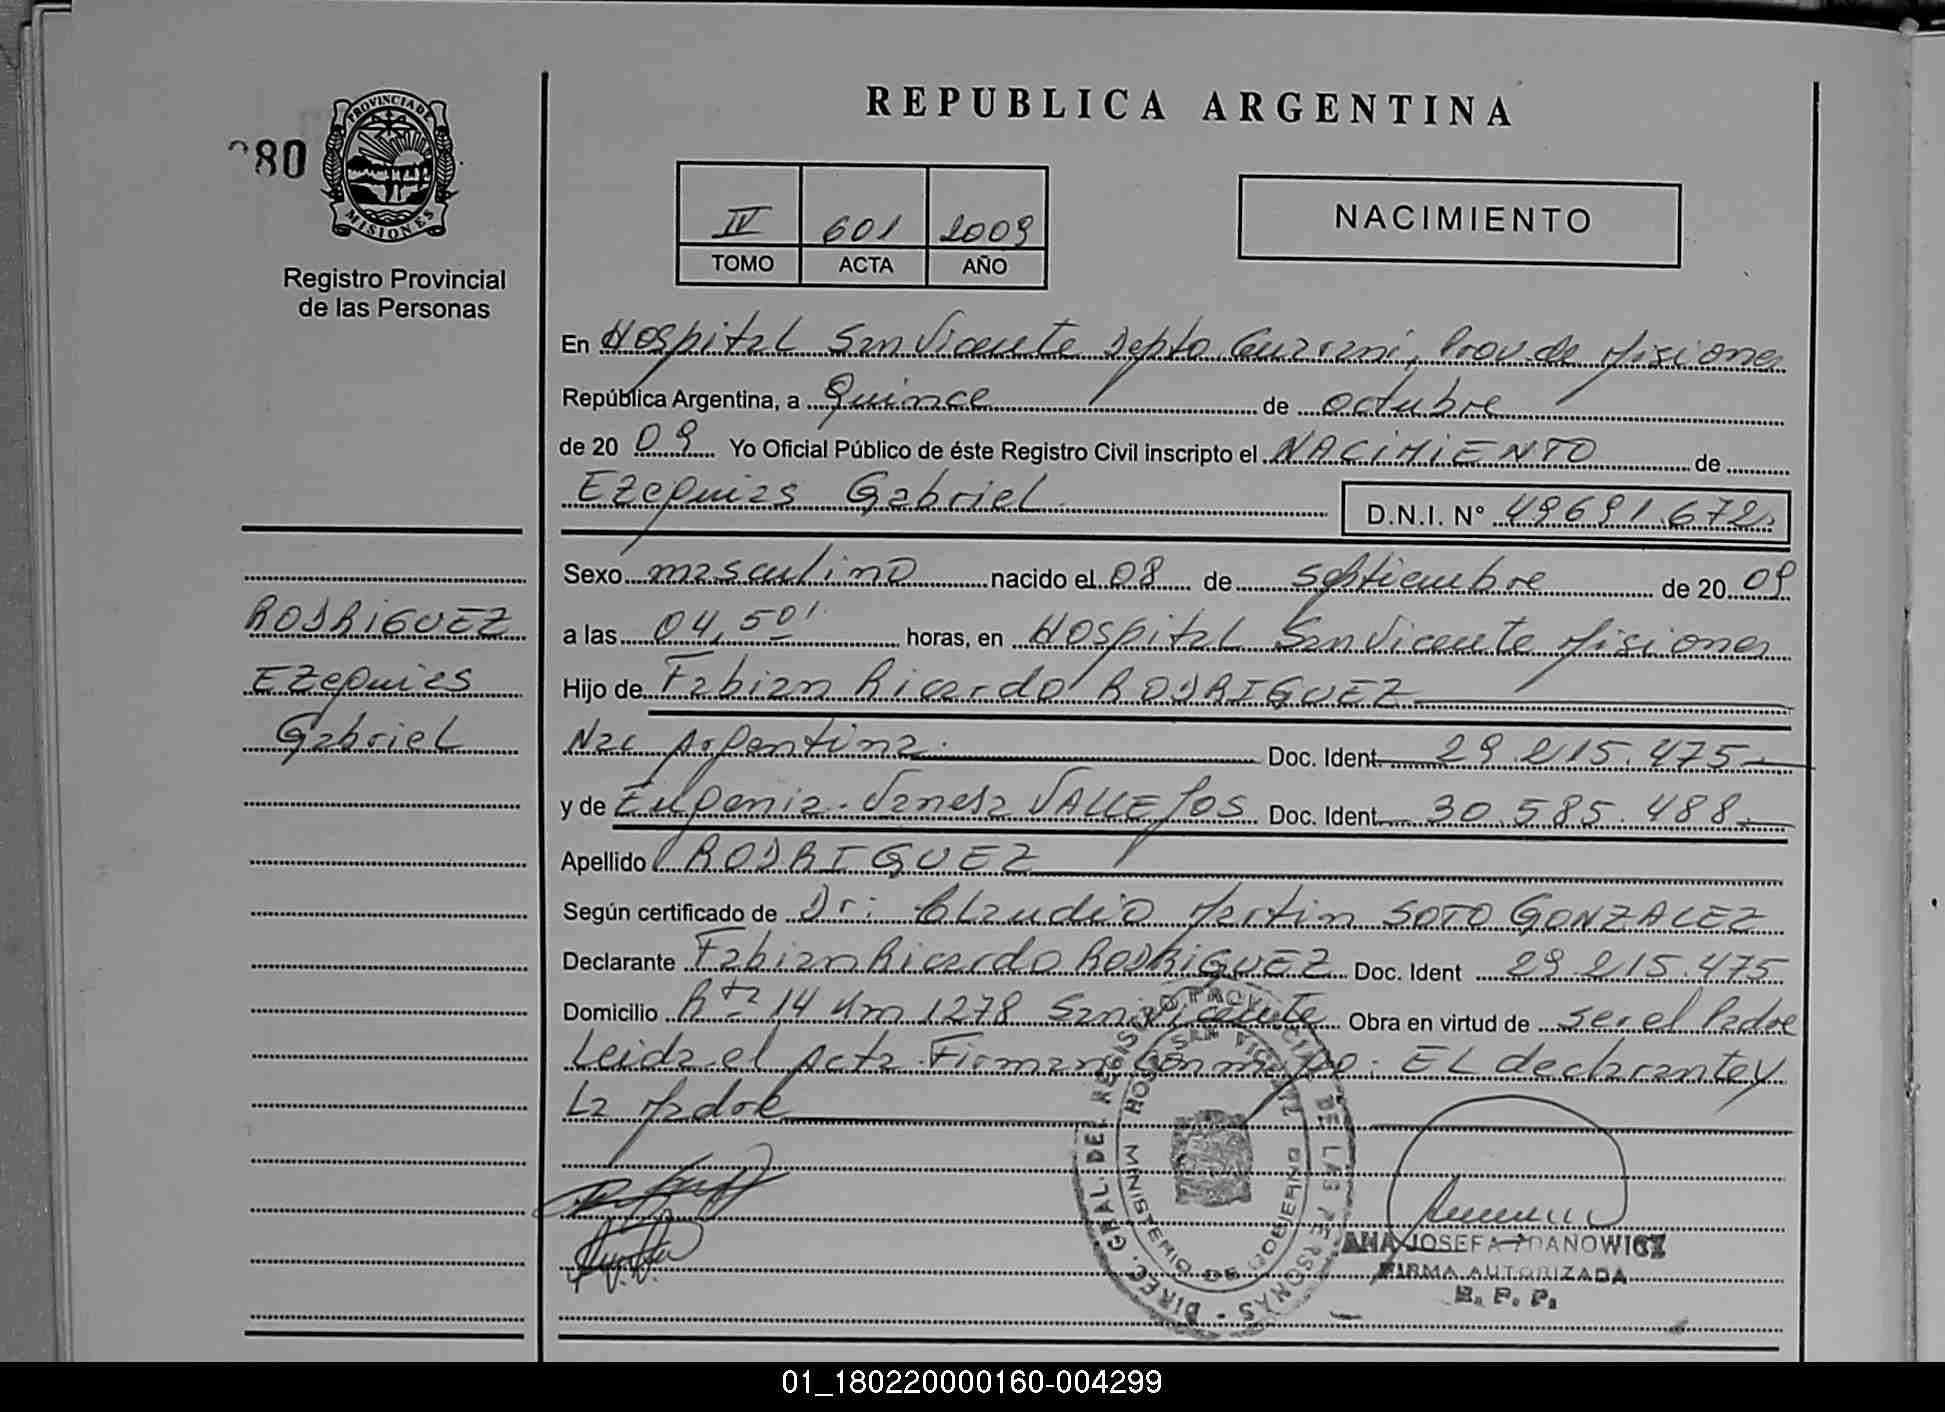 REPUBLICA ARGENTINA
80
PROVINCIA DE
MISIONES
Registro Provincial
de las Personas
IV 601 2009
TOMO ACTA AÑO
NACIMIENTO
En Hospital San Vicente Depto Guarani, Prov. de Misiones
República Argentina, a Quince de octubre
de 20 09 Yo Oficial Público de éste Registro Civil inscripto el NACIMIENTO de
Ezequias Gabriel D.N.I. N° 49691.672
Sexo masculino nacido el 08 de septiembre de 20 09
a las 04,50' horas, en Hospital San Vicente Misiones
Hijo de Fabian Ricardo RODRIGUEZ
Nac Argentina Doc. Ident 29.215.475
y de Eugenia Vanesa VALLEJOS Doc. Ident 30.585.488
Apellido RODRIGUEZ
Según certificado de Dr: Claudio Martin SOTO GONZALEZ
Declarante Fabian Ricardo RODRIGUEZ Doc. Ident 29.215.475
Domicilio Rta 14 Km 1278 San Vicente Obra en virtud de ser el Padre
Leida el Acta Firman conmigo: EL declarante y
La Madre
RODRIGUEZ
Ezequias
Gabriel
DIREC. GRAL. DEL REGISTRO PROVINCIAL DE LAS PERSONAS
HOSP. SAN VICENTE
MINISTERIO DE GOBIERNO
ANA JOSEFA ZDANOWICZ
FIRMA AUTORIZADA
R. P. P.
01_180220000160-004299